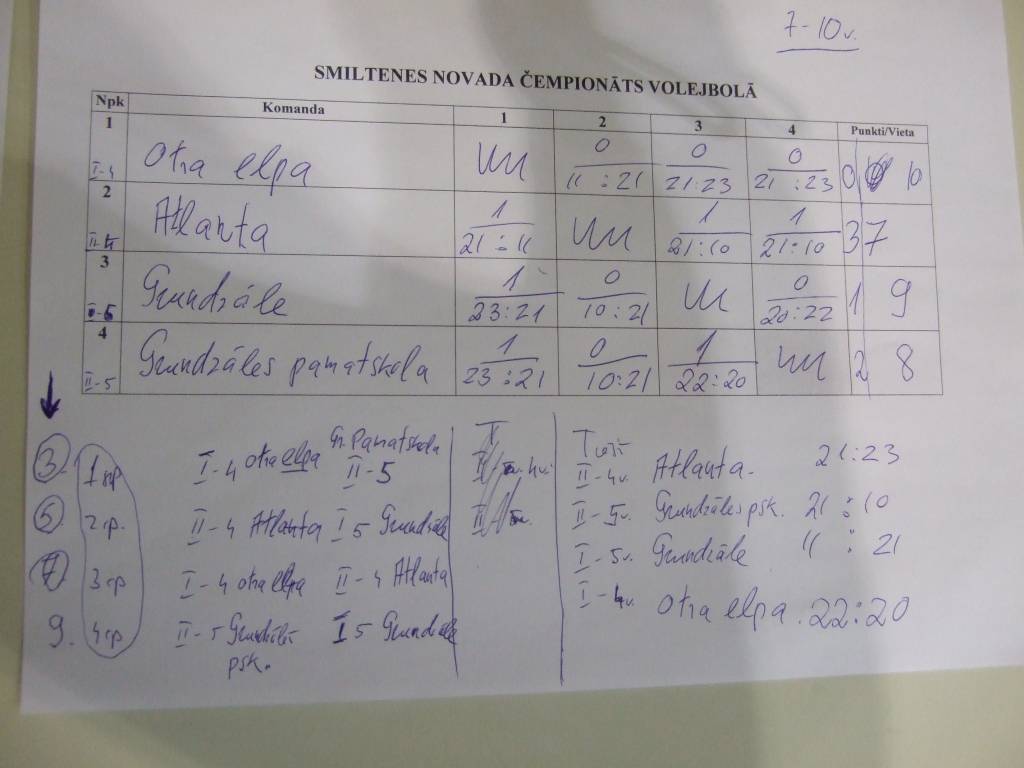 7-10v.
SMILTENES NOVADA ČEMPIONĀTS VOLEJBOLĀ
Npk Komanda 1 2 3 4 Punkti/Vieta
1 I-4 Otra elpa 0 11:21 0 21:23 0 21:23 0 10
2 II-4 Atlanta 1 21:11 1 21:10 1 21:10 3 7
3 Grundzāle 1 23:21 0 10:21 0 20:22 1 9
4 II-5 Grundzāles pamatskola 1 23:21 0 10:21 1 22:20 2 8
3. 1 sp I-4 Otra elpa Gr. Pamatskola II-5
5 2 sp. II-4 Atlanta I 5 Grundzāle
7 3 sp I-4 Otra elpa II-4 Atlanta
9. 4 sp II-5 Grundzāles psk. I 5 Grundzāle
II-4v. Atlanta. 21:23
II-5v. Grundzāles psk. 21:10
I-5v. Grundzāle 11:21
I-4v. Otra elpa. 22:20